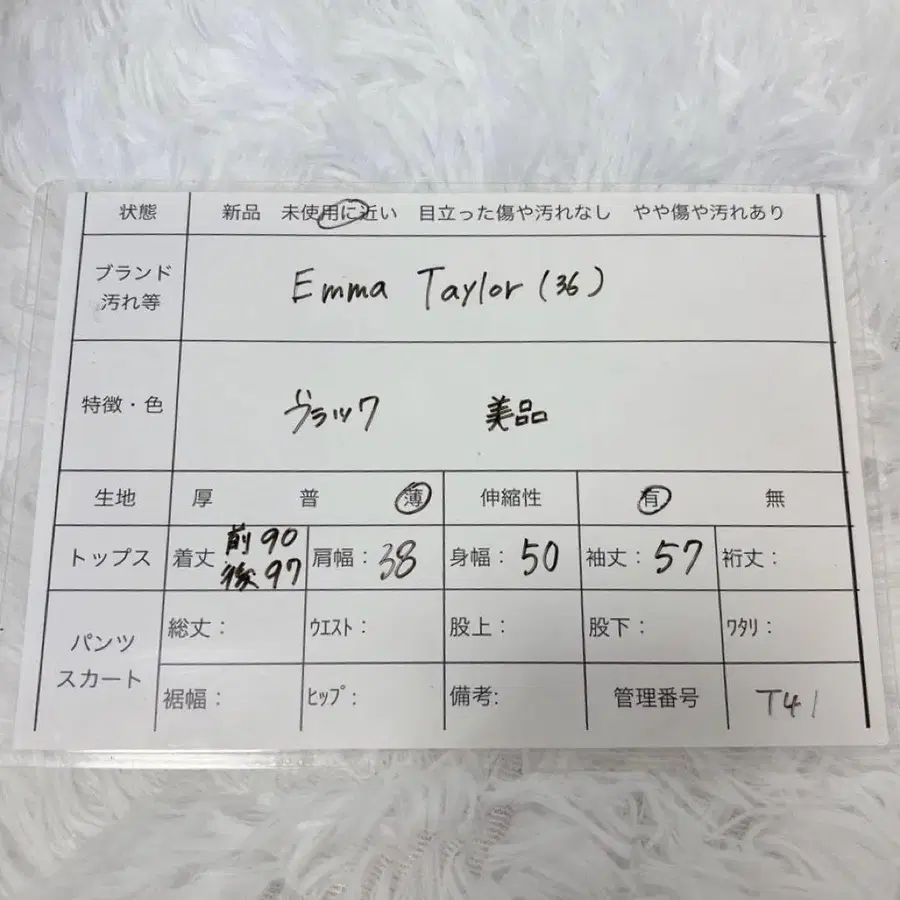 状態 新品 未使用に近い 目立った傷や汚れなし やや傷や汚れあり
ブランド
汚れ等
Emma Taylor (36)
特徴・色 ブラック 美品
生地 厚 普 薄 伸縮性 有 無
トップス 着丈 前90 肩幅: 38 身幅: 50 袖丈: 57 裄丈:
後97
パンツ
スカート
総丈: ウエスト: 股上: 股下: ワタリ:
裾幅: ヒップ: 備考: 管理番号 T41